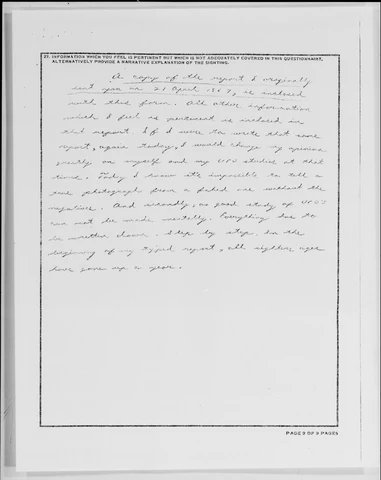 27. INFORMATION WHICH YOU FEEL IS PERTINENT BUT WHICH IS NOT ADEQUATELY COVERED IN THIS QUESTIONNAIRE,
ALTERNATIVELY PROVIDE A NARRATIVE EXPLANATION OF THE SIGHTING.
A copy of the report I originally
sent you on 21 April 1967, is inclosed
with this form. All other information
which I feel is pertinent is included in
that report. If I were to write that same
report, again today, I would change my opinion
greatly on myself and my UFO studies at that
time. Today I know it's impossible to tell a
true photograph from a faked one without the
negatives. And secondly, no good study of UFO's
can not be made mentally. Everything has to
be written down. Step by step. In the
beginning of my typed report, all ages
have gone up a year.
PAGE 8 OF 8 PAGES